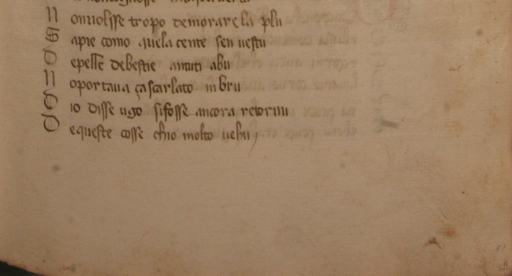 N onvolisse tropo demorare la plu
S apie como quela cente sen vestu
D epelle debestie antiti abu
N oportava ça scarlato nibru
D io disse ugo sifosse ancora retornu
D equeste cosse chio molto vehu